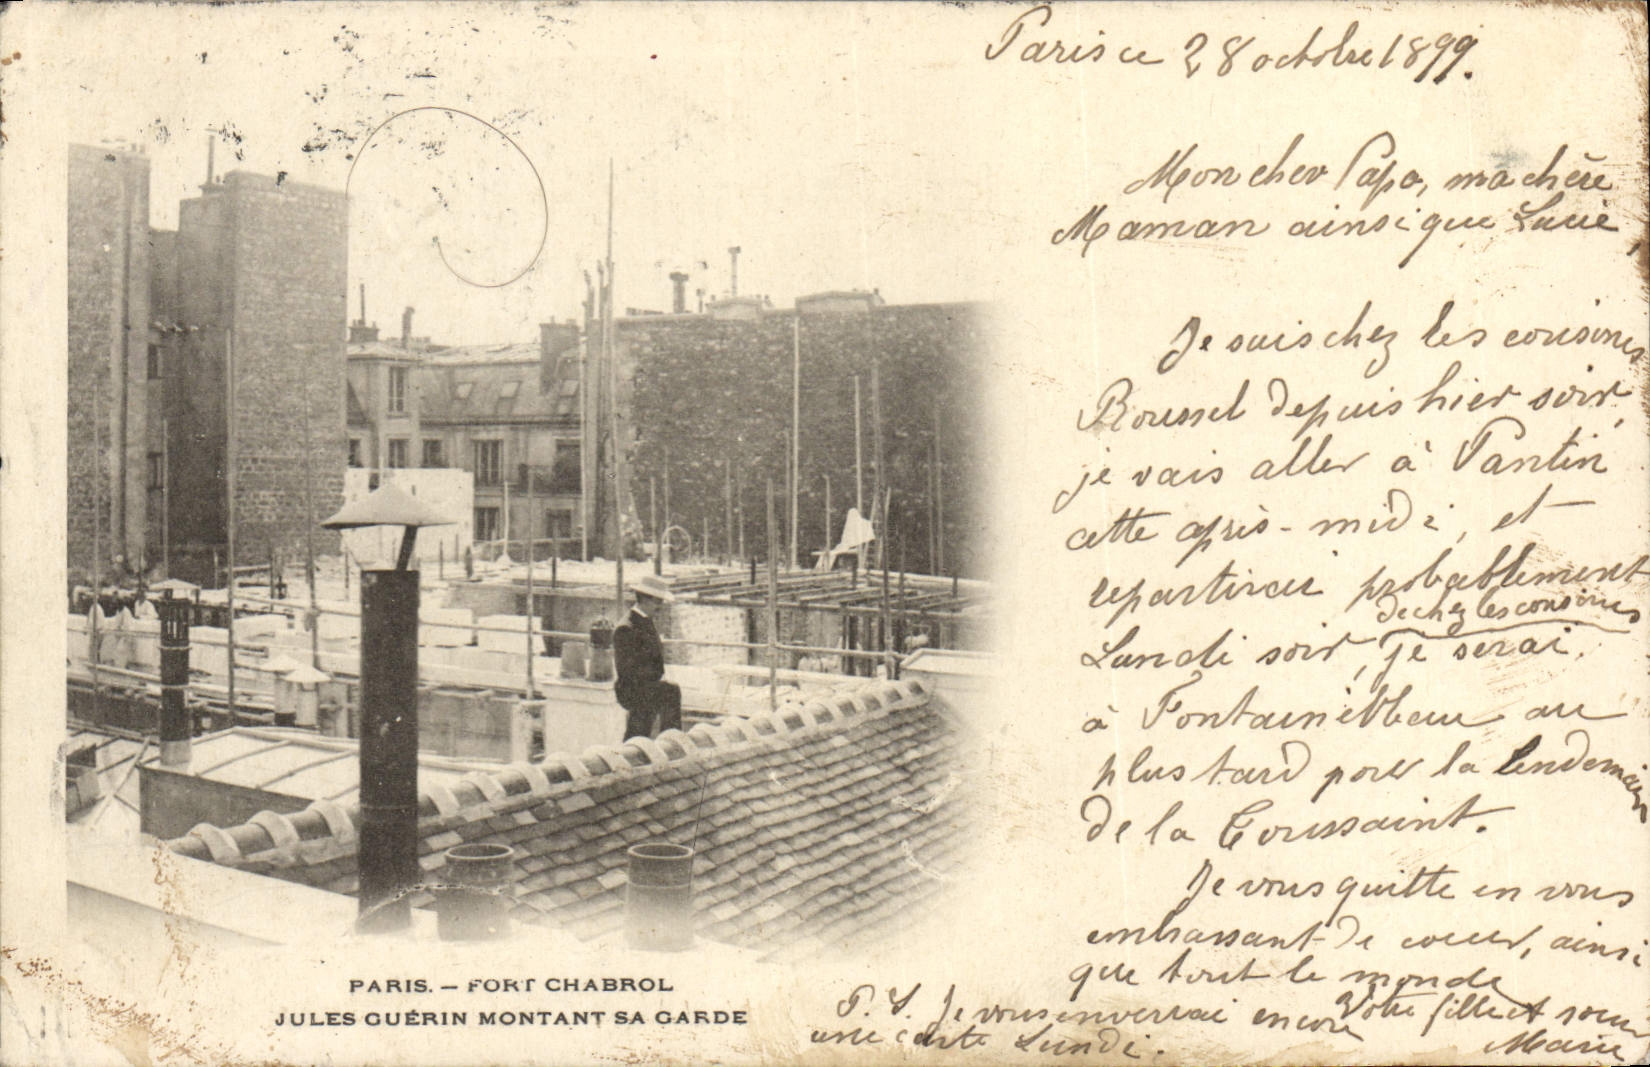 Paris ce 28 octobre 1899.
Mon cher Papa, ma chère
Maman ainsi que Lucie,
Je suis chez les cousines
Roussel depuis hier soir,
je vais aller à Pantin
cette après-midi, et
repartirai probablement
de chez les cousines
Lundi soir, je serai
à Fontainebleau au
plus tard pour la lendemain
de la Toussaint.
Je vous quitte en vous
embrassant de coeur, ainsi
que tout le monde
Votre fille et soeur
Marie
P. S. Je vous enverrai encore
une carte Lundi.
PARIS. — FORT CHABROL
JULES GUÉRIN MONTANT SA GARDE